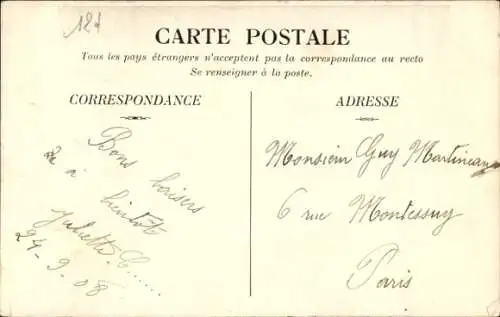 121
CARTE POSTALE
Tous les pays étrangers n'acceptent pas la correspondance au recto
Se renseigner à la poste.
CORRESPONDANCE
Bons baisers
à bientôt
Juliette C......
24-9-08
ADRESSE
Monsieur Guy
6 rue Montessuy
Paris